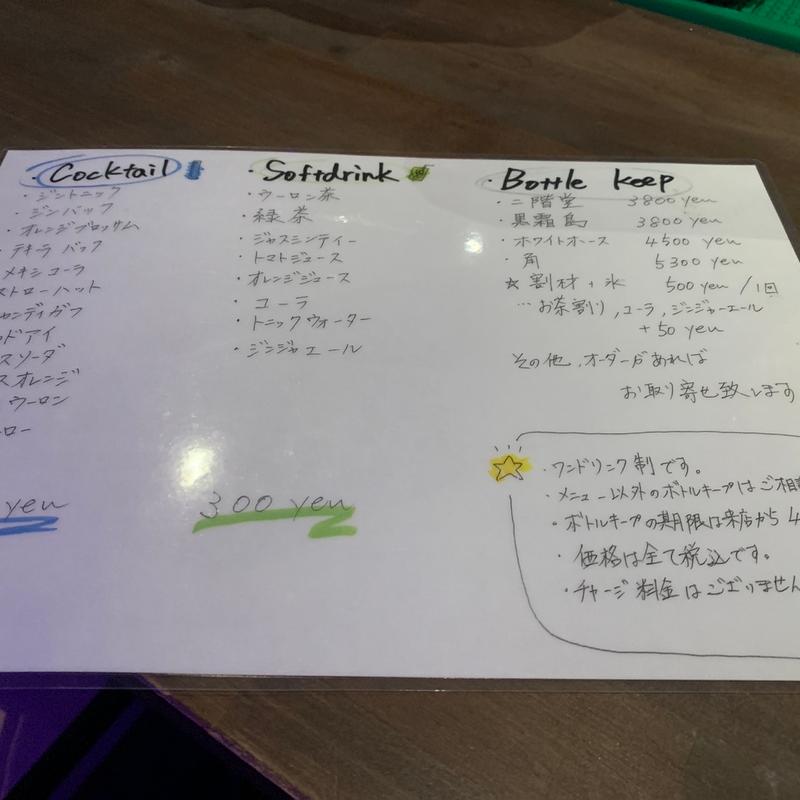 ・Cocktail
・ジントニック
・ジンバック
・オレンジブロッサム
テキーラバック
メキシコーラ
ストローハット
ャンディガフ
ッドアイ
スソーダ
スオレンジ
ウーロン
ロー
yen
・Softdrink
・ウーロン茶
・緑茶
・ジャスミンティー
・トマトジュース
・オレンジジュース
・コーラ
・トニックウォーター
・ジンジャエール
300 yen
・Bottle keep
・二階堂 3800 yen
・黒霧島 3800 yen
・ホワイトホース 4500 yen
・角 5300 yen
☆ 割材 + 氷 500 yen / 1回
…お茶割り, コーラ, ジンジャーエール
+50 yen
その他, オーダーがあれば
お取り寄せ致します
・ワンドリンク制です。
・メニュー以外のボトルキープはご相
・ボトルキープの期限は来店から4
・価格は全て税込です。
・チャージ料金はございません